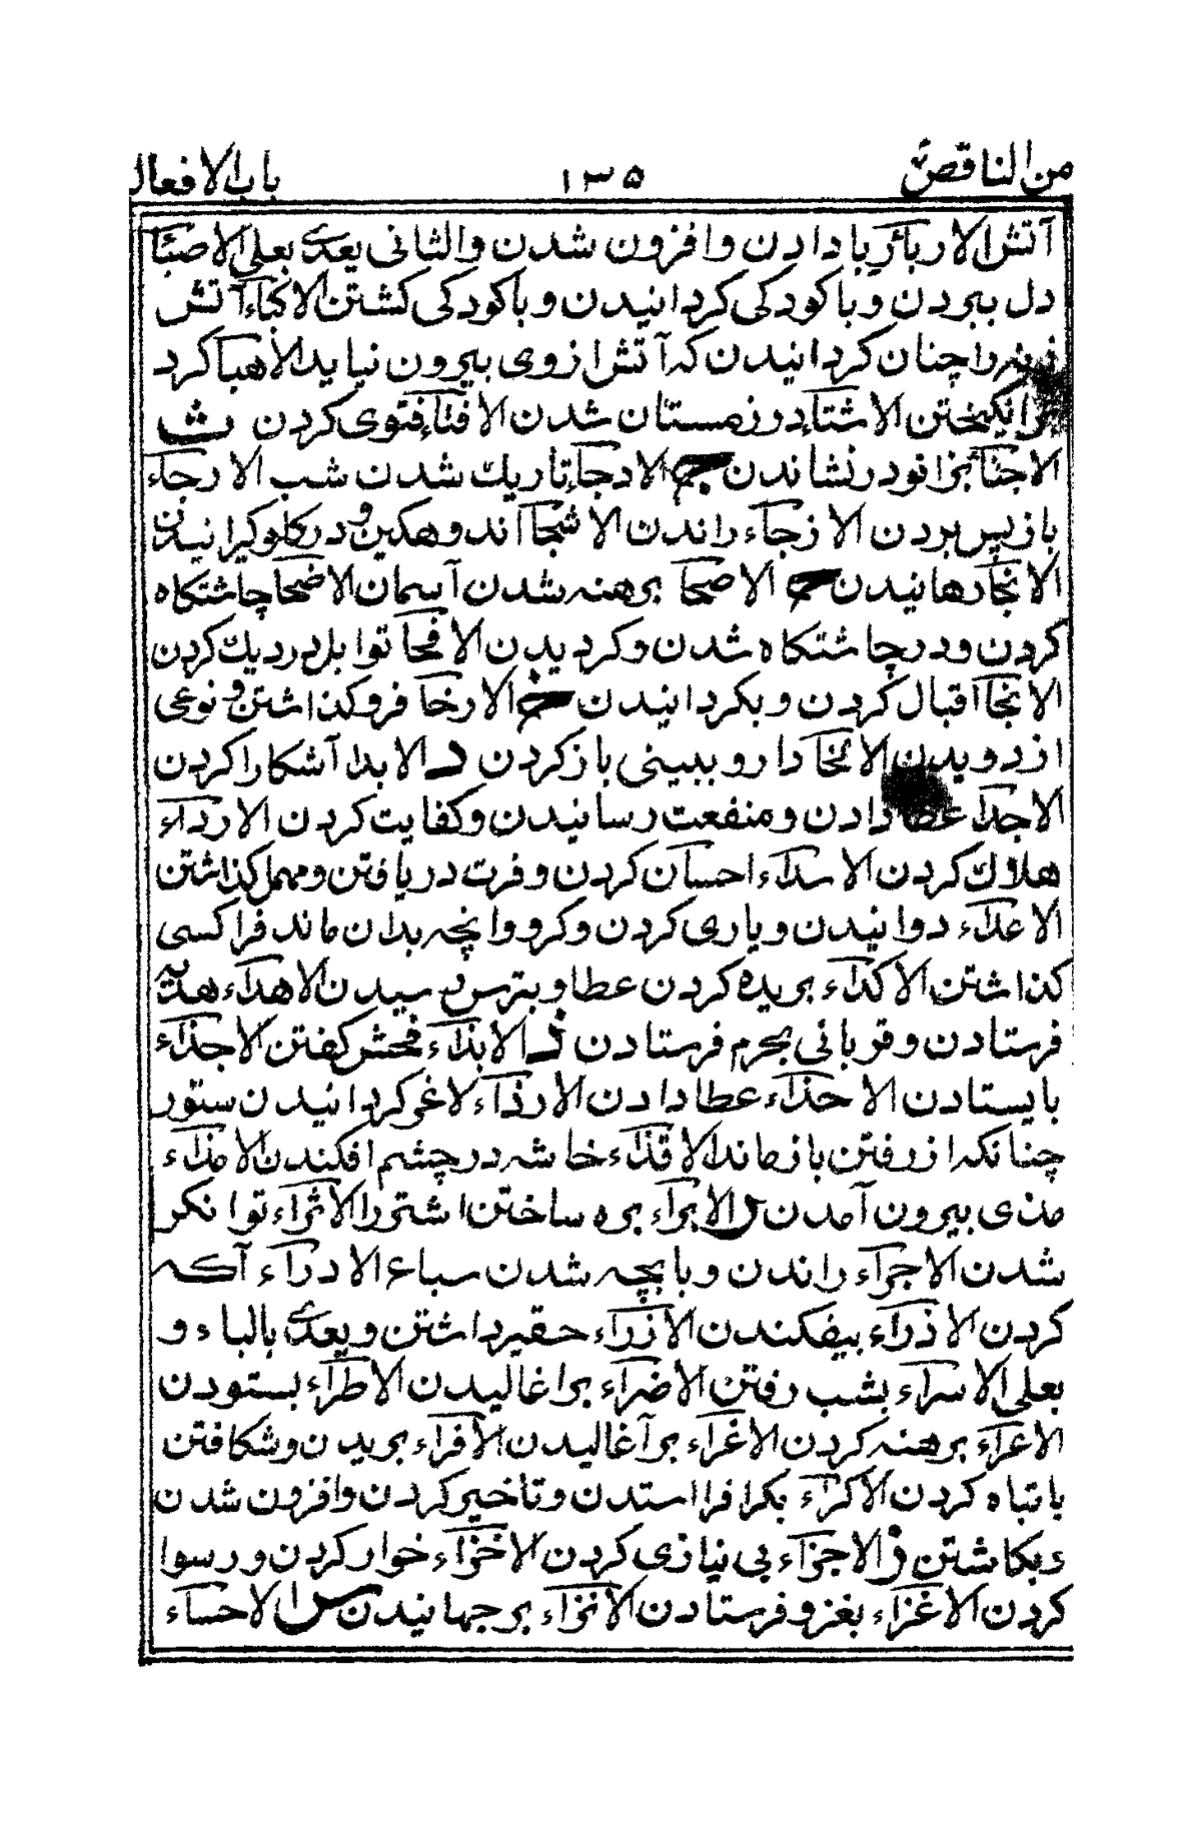 من الناقص ١٣٥ باب الافعال
آتش الارباء ربا دادن و افزون شدن و الثانی یعدی بعلی الاصباء
دل ببردن و با کودکی کردانیدن و با کودکی کشتن الاکباء آتش
را چنان کردانیدن که آتش از وی بیرون نیاید الاهبا کرد
برانکیختن الاشتاء در زمستان شدن الافتاء فتوی کردن ث
الاجثاء بزانو درنشاندن ج الادجاء تاریك شدن شب الارجاء
باز پس بردن الازجاء راندن الاشجاء اندوهکین و در کلو کیرانیدن
الانجاء رهانیدن ح الاصحا برهنه شدن آسمان الاضحا چاشتکاه
کردن و در چاشتکاه شدن و کردیدن الافحا توابل در دیك کردن
الانحا اقبال کردن و بکردانیدن خ الارخا فروکذاشتن و نوعی
از دویدن الانخا دارو ببینی باز کردن د الابدا آشکارا کردن
الاجداء عطا دادن و منفعت رسانیدن و کفایت کردن الارداء
هلاك کردن الاسداء احسان کردن و فرت دریافتن و مهمل کذاشتن
الاعداء دوانیدن و یاری کردن و کر و وانچه بدان ماند فرا کسی
کذاشتن الاکداء بریده کردن عطا و بترس رسیدن الاهداء هدیه
فرستادن و قربانی بحرم فرستادن ذ الابذاء فحش کفتن الاجذاء
بایستادن الاحذاء عطا دادن الارذاء لاغر کردانیدن ستور
چنانکه از رفتن باز ماند الاقذاء خاشه در چشم افکندن الامذاء
مذی بیرون آمدن ر الابراء بره ساختن اشتر را الاثراء توانکر
شدن الاجراء راندن و با بچه شدن سباع الادراء آکه
کردن الاذراء بیفکندن الازراء حقیر داشتن و یعدی بالباء و
بعلی الاسراء بشب رفتن الاضراء براغالیدن الاطراء بستودن
الاعراء برهنه کردن الاغراء برآغالیدن الافراء بریدن و شکافتن
با تباه کردن الاکراء بکرا فرا استدن و تاخیر کردن و افزون شدن
و بکاشتن ز الاجزاء بی نیازی کردن الاخزاء خوار کردن و رسوا
کردن الاغزاء بغزو فرستادن الانزاء برجهانیدن س الاحساء